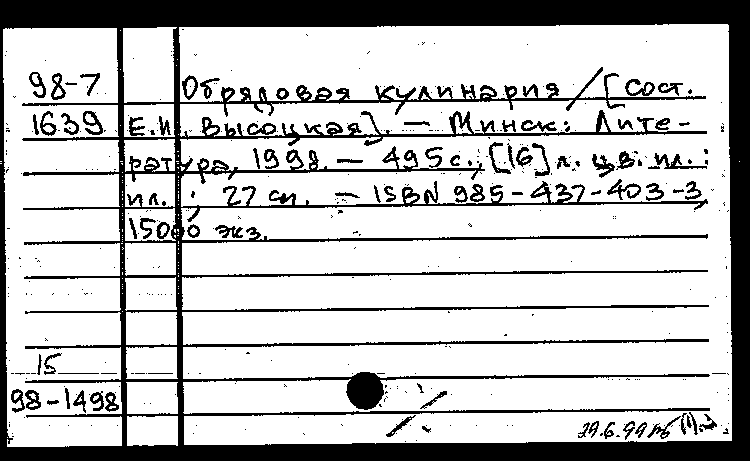 98-7 Обрядовая кулинария / [Сост.
1639 Е.И. Высоцкая]. — Минск: Лите-
ратура, 1998. — 495 с., [16] л. цв. ил. :
ил. ; 27 см. — ISBN 985-437-403-3,
15000 экз.
15
98-1498
29.6.99